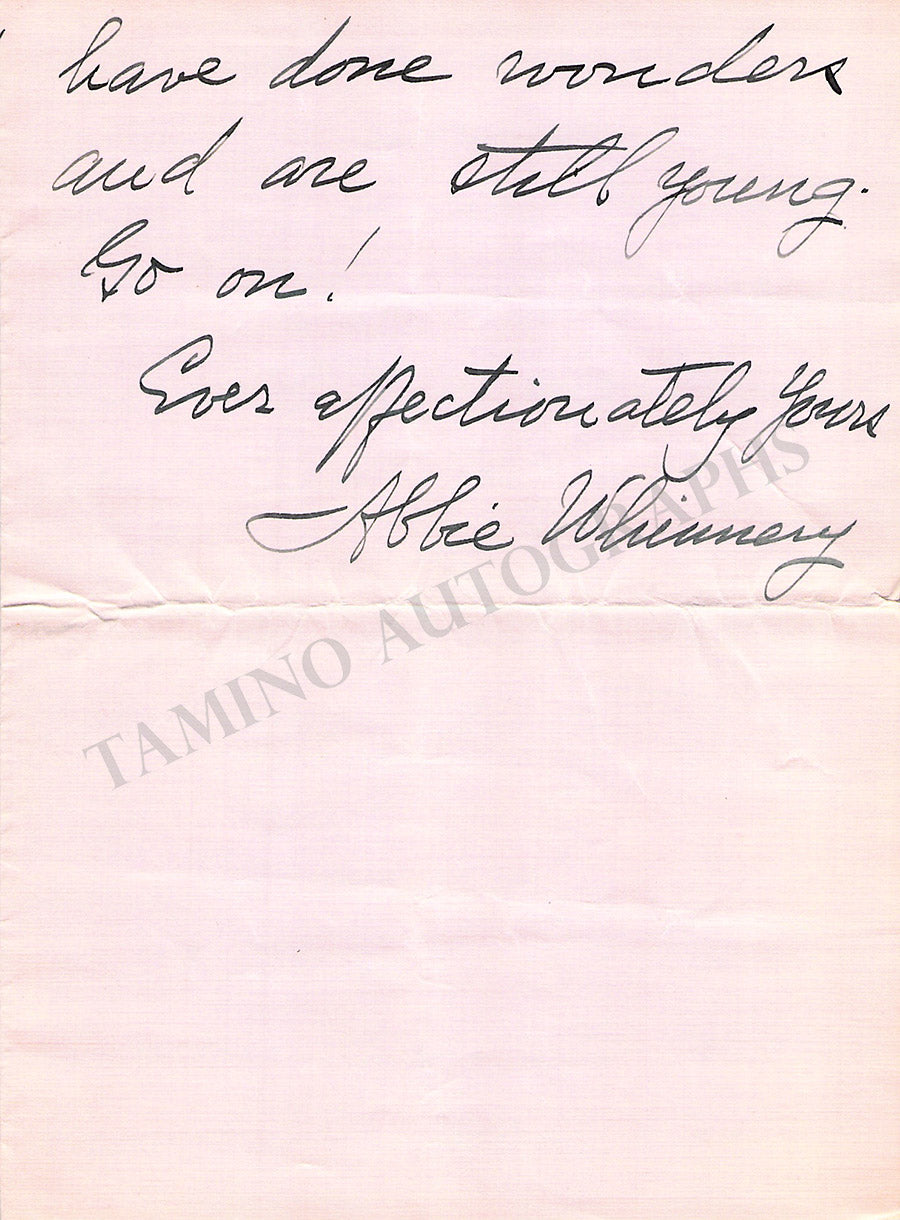 have done wonders
and are still young.
Go on!
Ever affectionately Yours
Abbie Whinnery
TAMINO AUTOGRAPHS